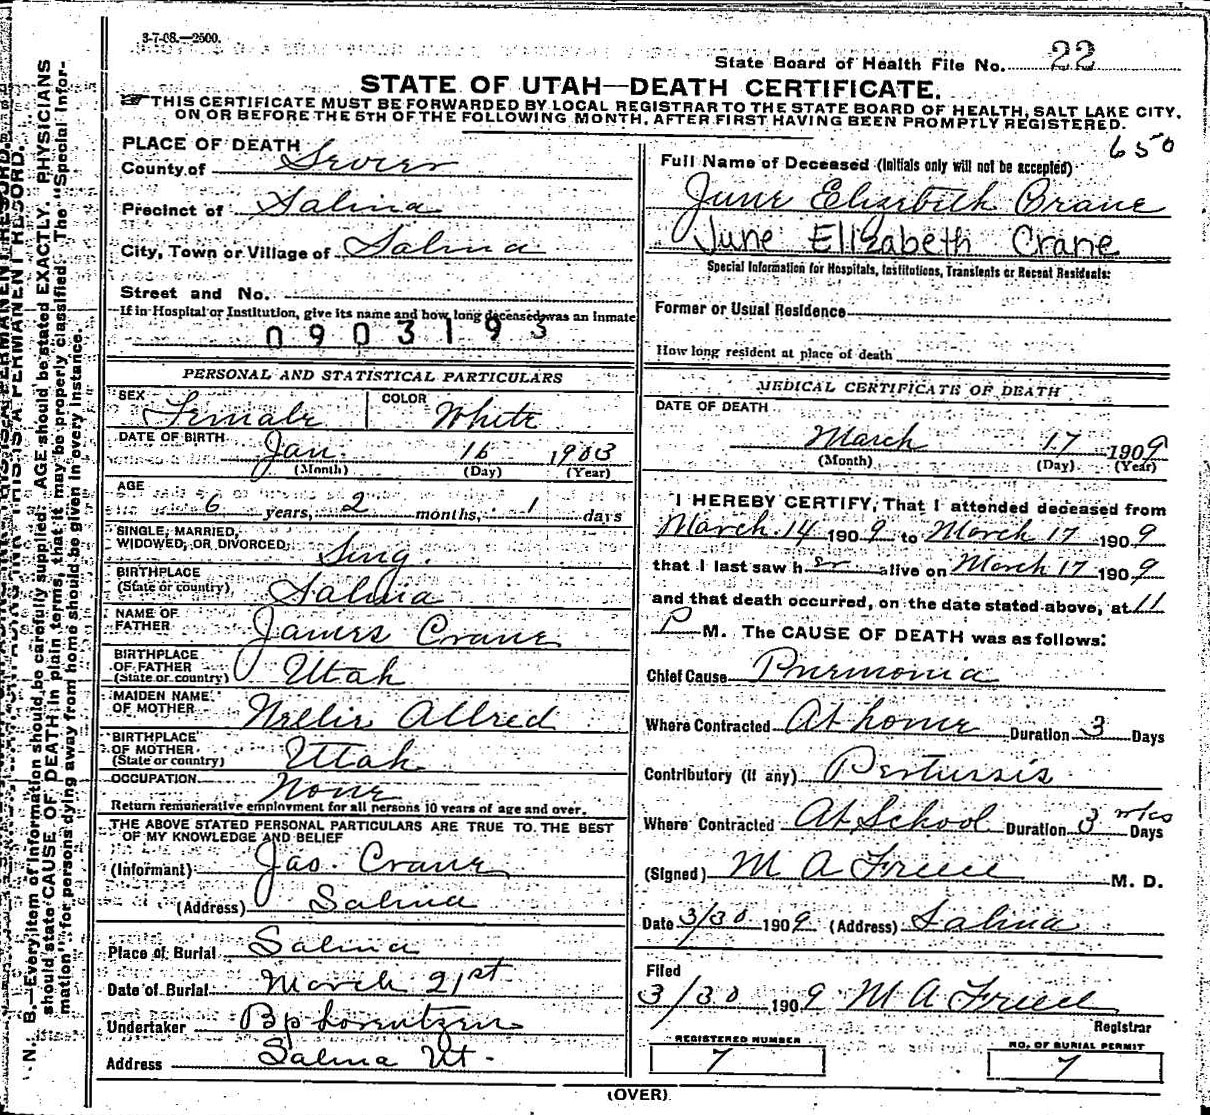 3-7-08.—2500.
State Board of Health File No. 22
STATE OF UTAH—DEATH CERTIFICATE.
THIS CERTIFICATE MUST BE FORWARDED BY LOCAL REGISTRAR TO THE STATE BOARD OF HEALTH, SALT LAKE CITY,
ON OR BEFORE THE 5TH OF THE FOLLOWING MONTH, AFTER FIRST HAVING BEEN PROMPTLY REGISTERED.
650
PLACE OF DEATH
County of Sevier
Precinct of Salina
City, Town or Village of Salina
Street and No.
If in Hospital or Institution, give its name and how long deceased was an inmate
0903193
PERSONAL AND STATISTICAL PARTICULARS
SEX Female COLOR White
DATE OF BIRTH Jan. 16 1903
(Month) (Day) (Year)
AGE
6 years, 2 months, 1 days
SINGLE, MARRIED,
WIDOWED, OR DIVORCED Sing.
BIRTHPLACE
(State or country) Salina
NAME OF
FATHER James Crane
BIRTHPLACE
OF FATHER
(State or country) Utah
MAIDEN NAME
OF MOTHER Nellie Allred
BIRTHPLACE
OF MOTHER
(State or country) Uttah
OCCUPATION None
Return remunerative employment for all persons 10 years of age and over.
THE ABOVE STATED PERSONAL PARTICULARS ARE TRUE TO THE BEST
OF MY KNOWLEDGE AND BELIEF
(Informant) Jas. Crane
(Address) Salina
Place of Burial Salina
Date of Burial March 21st
Undertaker Bp Lorentzen
Address Salina Ut.
Full Name of Deceased (Initials only will not be accepted)
June Elizebith Crane
June Elizabeth Crane
Special Information for Hospitals, Institutions, Transients or Recent Residents:
Former or Usual Residence
How long resident at place of death
MEDICAL CERTIFICATE OF DEATH
DATE OF DEATH
March 17 1909
(Month) (Day) (Year)
I HEREBY CERTIFY, That I attended deceased from
March 14 1909 to March 17 1909
that I last saw her alive on March 17 1909
and that death occurred, on the date stated above, at 11
P M. The CAUSE OF DEATH was as follows:
Chief Cause Pnemonia
Where Contracted At home Duration 3 Days
Contributory (if any) Pertussis
Where Contracted At School Duration 3 wks Days
(Signed) M A Freece M. D.
Date 3/30 1909 (Address) Salina
Filed
3/30 1909 M A Freece
Registrar
REGISTERED NUMBER
7
NO. OF BURIAL PERMIT
7
(OVER)
THIS IS A PERMANENT RECORD.
N. B.—Every item of information should be carefully supplied. AGE should be stated EXACTLY. PHYSICIANS
should state CAUSE OF DEATH in plain terms, that it may be properly classified. The "Special Infor-
mation" for persons dying away from home should be given in every instance.